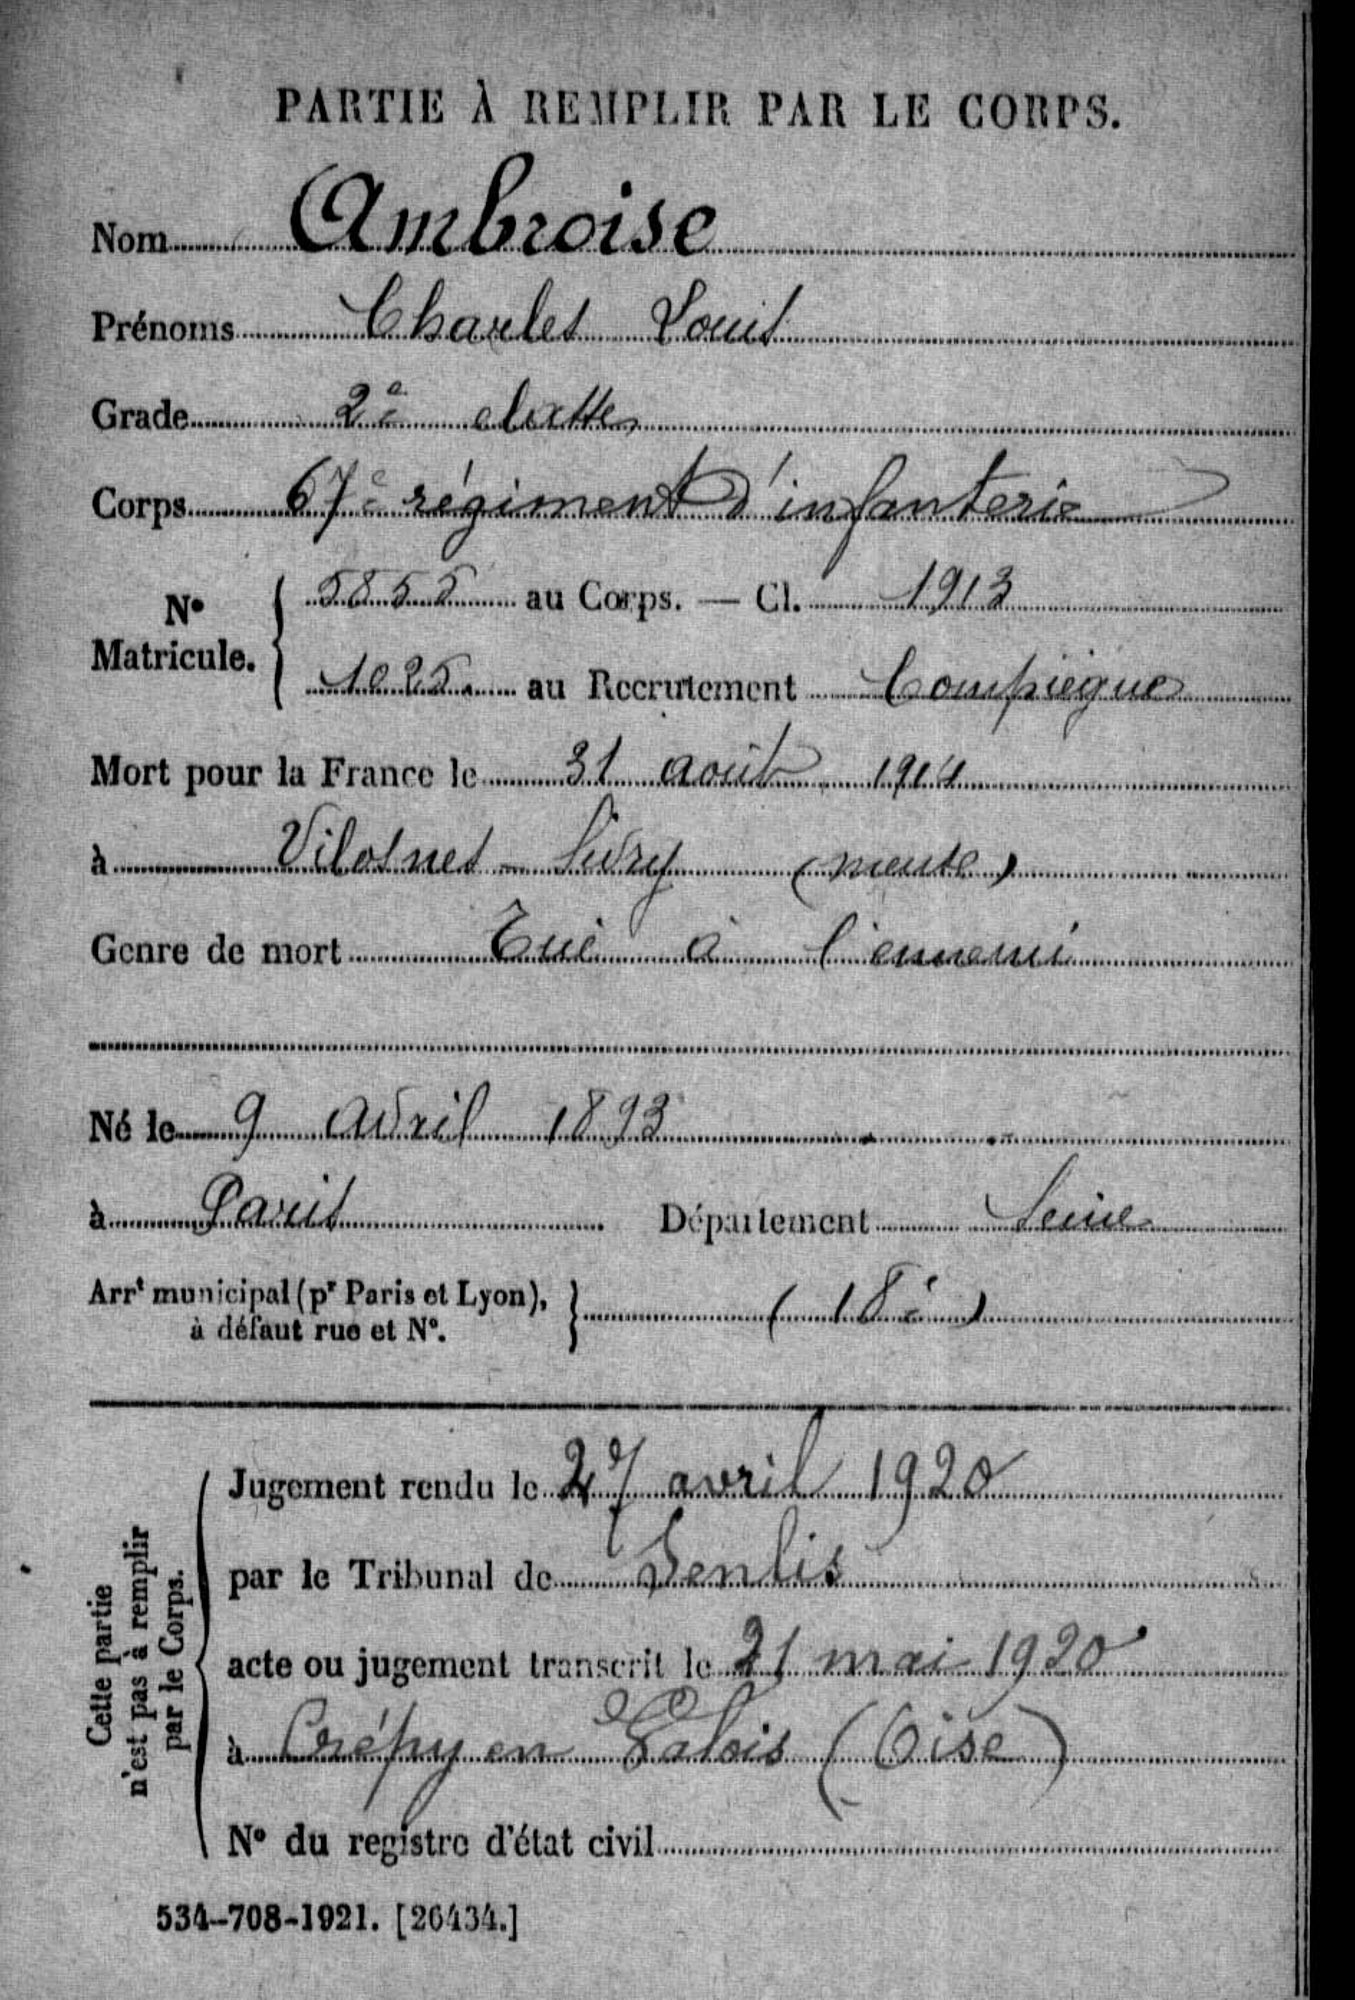 PARTIE À REMPLIR PAR LE CORPS.
Nom Ambroise
Prénoms Charles Louis
Grade 2e classe
Corps 67e régiment d'infanterie
No Matricule. { 5855 au Corps. — Cl. 1913
1025 au Recrutement Compiègne
Mort pour la France le 31 août 1914
à Vilosnes - Sivry (meuse)
Genre de mort Tué à l'ennemi
Né le 9 avril 1893
à Paris Département Seine
Arrt municipal (pr Paris et Lyon), à défaut rue et No. } (18e)
Cette partie n'est pas à remplir par le Corps.
Jugement rendu le 27 avril 1920
par le Tribunal de Senlis
acte ou jugement transcrit le 21 mai 1920
à Crépy en Valois (Oise)
No du registre d'état civil
534-708-1921. [26434.]